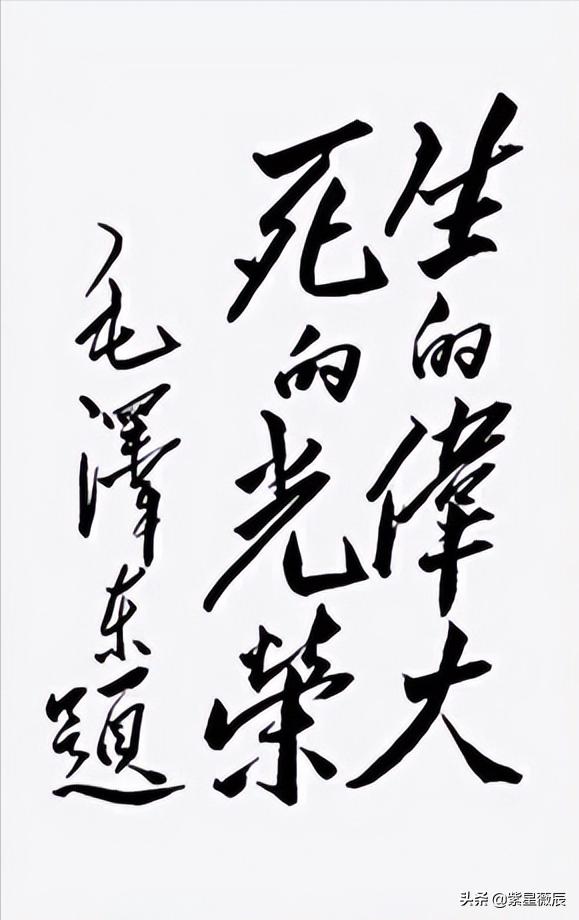 生的偉大
死的光榮
毛澤东題
头条 @紫星薇辰